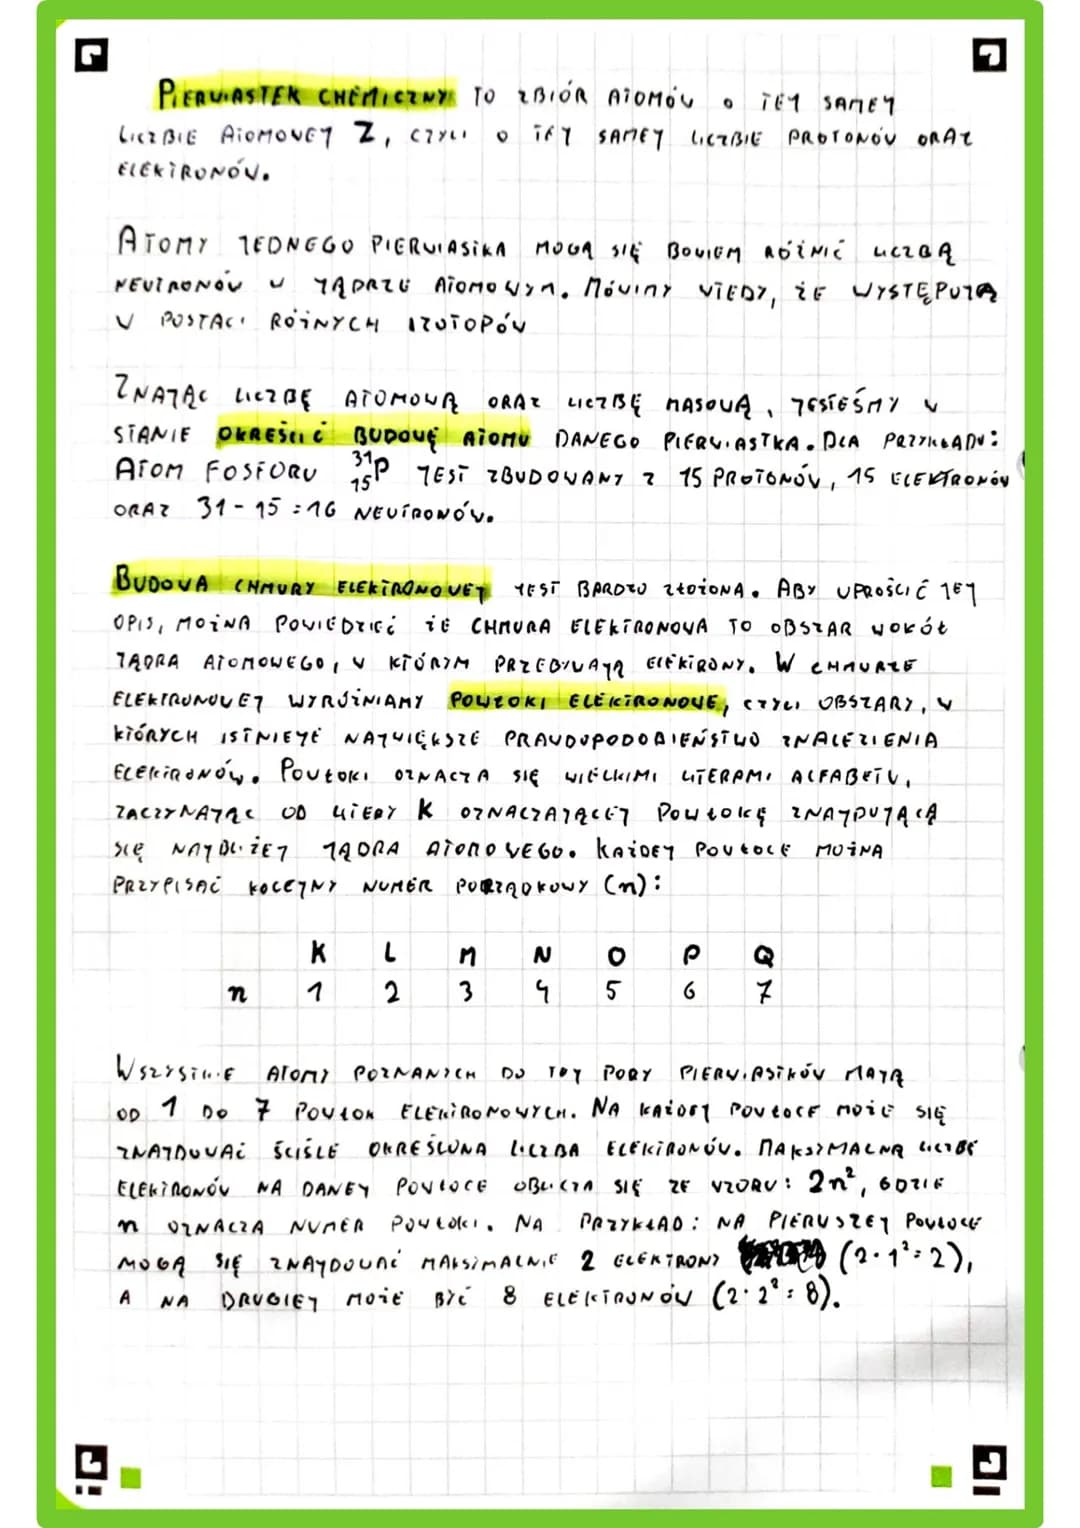 PIERWIASTEK CHEMICZNY TO ZBIÓR ATOMÓW O TEJ SAMEJ
LICZBIE ATOMOWEJ Z, CZYLI O TEJ SAMEJ LICZBIE PROTONÓW ORAZ
ELEKTRONÓW.
ATOMY JEDNEGO PIERWIASTKA MOGĄ SIĘ BOWIEM RÓŻNIĆ LICZBĄ
NEUTRONÓW W JĄDRZE ATOMOWYM. MÓWIMY WTEDY, ŻE WYSTĘPUJĄ
W POSTACI RÓŻNYCH IZOTOPÓW
ZNAJĄC LICZBĘ ATOMOWĄ ORAZ LICZBĘ MASOWĄ, JESTEŚMY W
STANIE OKREŚLIĆ BUDOWĘ ATOMU DANEGO PIERWIASTKA. DLA PRZYKŁADU:
ATOM FOSFORU ³¹₁₅P JEST ZBUDOWANY Z 15 PROTONÓW, 15 ELEKTRONÓW
ORAZ 31-15=16 NEUTRONÓW.
BUDOWA CHMURY ELEKTRONOWEJ JEST BARDZO ZŁOŻONA. ABY UPROŚCIĆ JEJ
OPIS, MOŻNA POWIEDZIEĆ ŻE CHMURA ELEKTRONOWA TO OBSZAR WOKÓŁ
JĄDRA ATOMOWEGO, W KTÓRYM PRZEBYWAJĄ ELEKTRONY. W CHMURZE
ELEKTRONOWEJ WYRÓŻNIAMY POWŁOKI ELEKTRONOWE, CZYLI OBSZARY, W
KTÓRYCH ISTNIEJE NAJWIĘKSZE PRAWDOPODOBIEŃSTWO ZNALEZIENIA
ELEKTRONÓW. POWŁOKI OZNACZA SIĘ WIELKIMI LITERAMI ALFABETU,
ZACZYNAJĄC OD LITERY K OZNACZAJĄCEJ POWŁOKĘ ZNAJDUJĄCĄ
SIĘ NAJBLIŻEJ JĄDRA ATOMOWEGO. KAŻDEJ POWŁOCE MOŻNA
PRZYPISAĆ KOLEJNY NUMER PORZĄDKOWY (n):
K L M N O P Q
n 1 2 3 4 5 6 7
WSZYSTKIE ATOMY POZNANYCH DO TEJ PORY PIERWIASTKÓW MAJĄ
OD 1 DO 7 POWŁOK ELEKTRONOWYCH. NA KAŻDEJ POWŁOCE MOŻE SIĘ
ZNAJDOWAĆ ŚCIŚLE OKREŚLONA LICZBA ELEKTRONÓW. MAKSYMALNĄ LICZBĘ
ELEKTRONÓW NA DANEJ POWŁOCE OBLICZA SIĘ ZE WZORU: 2n², GDZIE
n OZNACZA NUMER POWŁOKI. NA PRZYKŁAD: NA PIERWSZEJ POWŁOCE
MOGĄ SIĘ ZNAJDOWAĆ MAKSYMALNIE 2 ELEKTRONY (2·1²=2),
A NA DRUGIEJ MOŻE BYĆ 8 ELEKTRONÓW (2·2²=8).